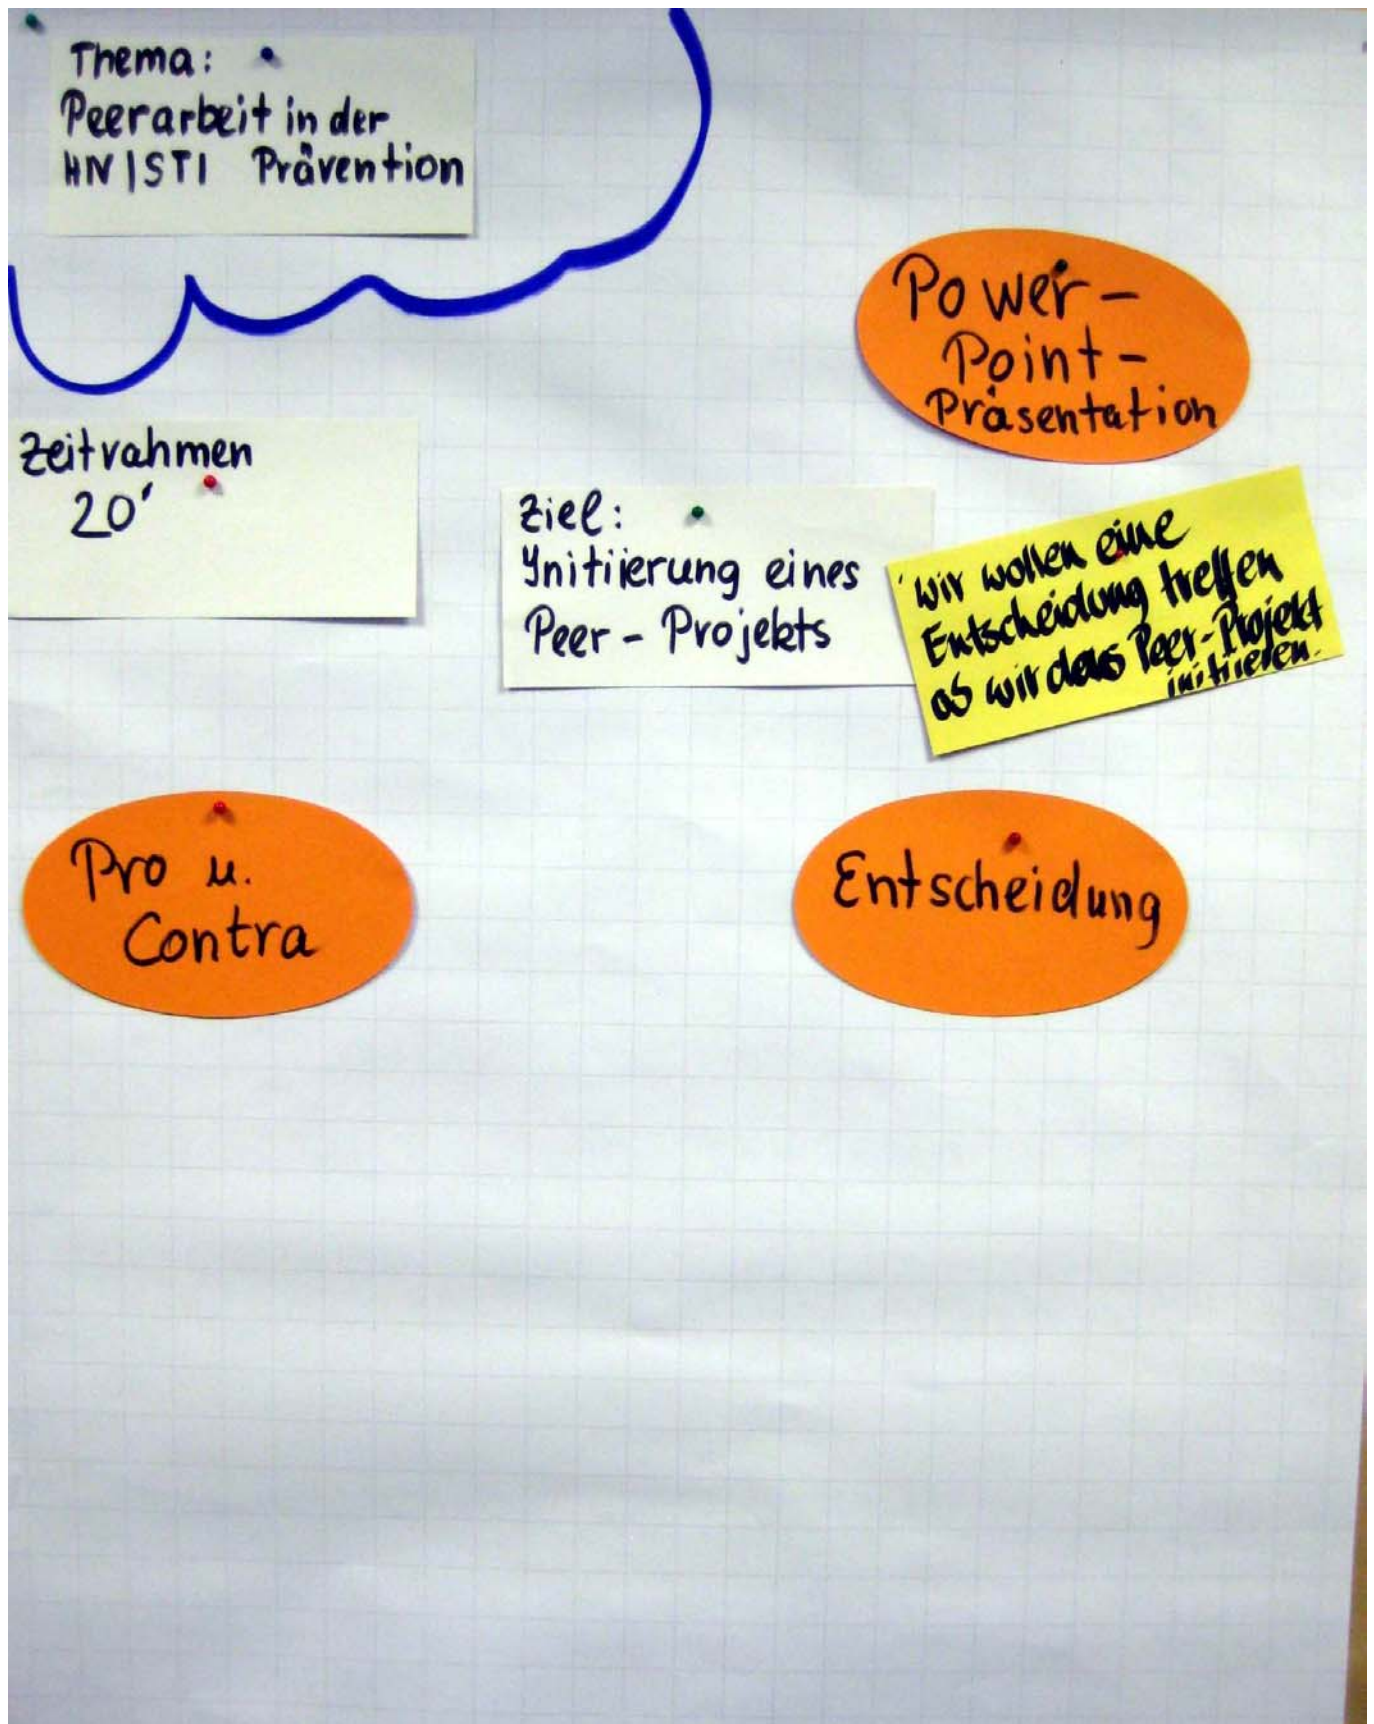 Thema:
Peerarbeit in der
HIV|STI Prävention
Power-
Point-
Präsentation
Zeitrahmen
20'
Ziel:
Initiierung eines
Peer-Projekts
Wir wollen eine
Entscheidung treffen
ob wir das Peer-Projekt
initiieren.
Pro u.
Contra
Entscheidung